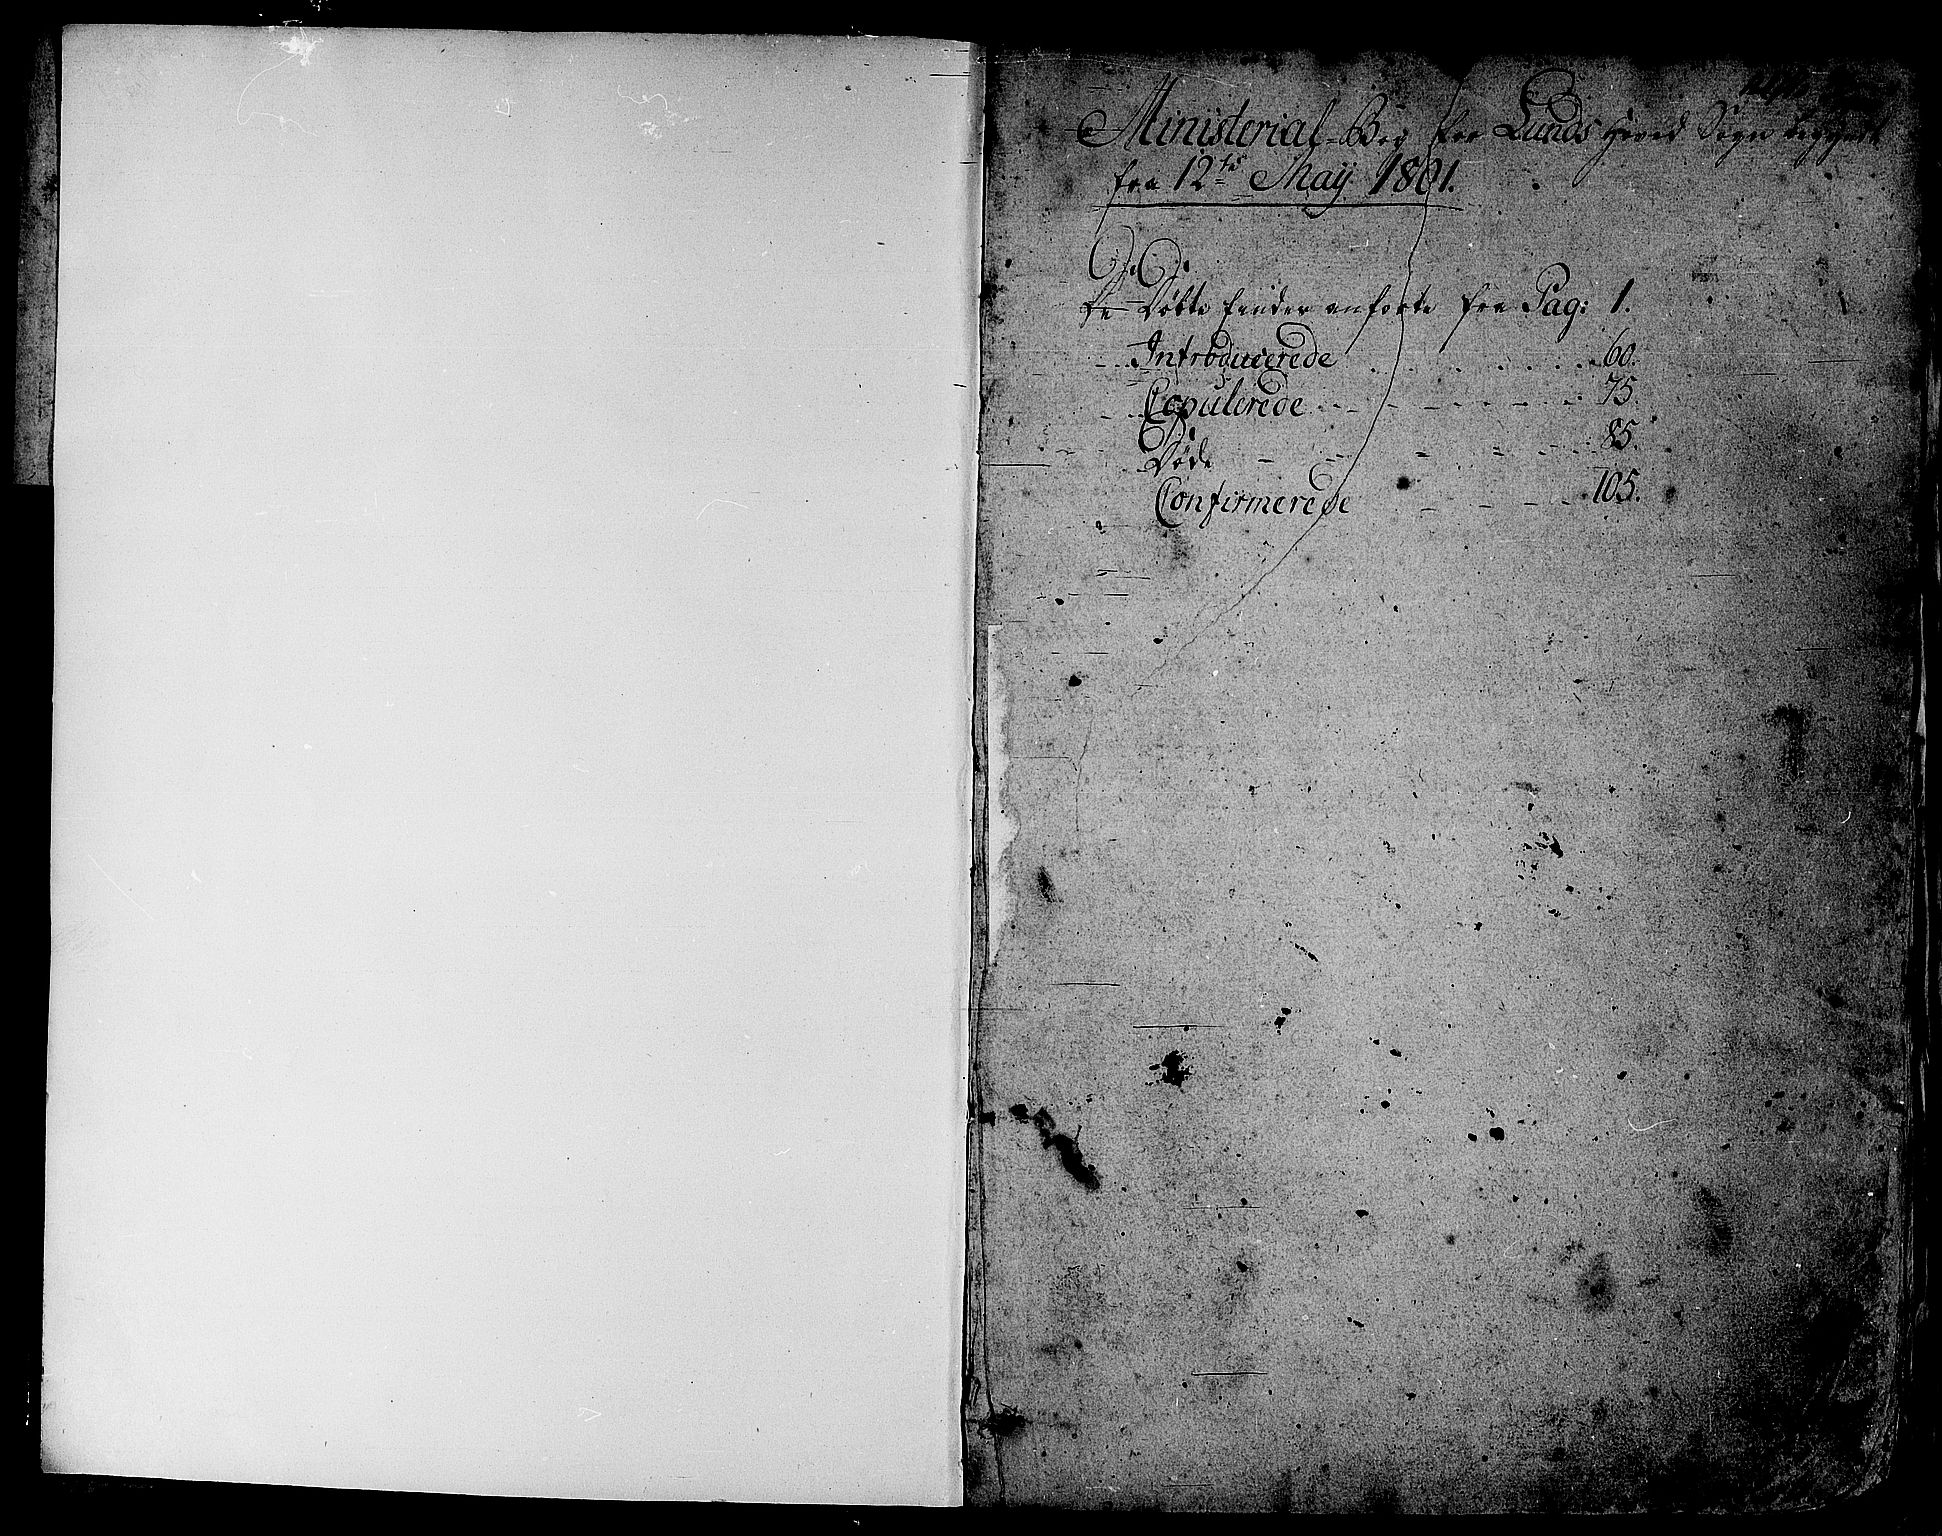 Ministerial-Bog for Lunds Hoved Sogn begyndt
fra 12te May 1801.
De Døbte findes anførte fra Pag: 1.
Introducerede 60.
Copulerede 75.
Døde 85.
Confirmerede 105.